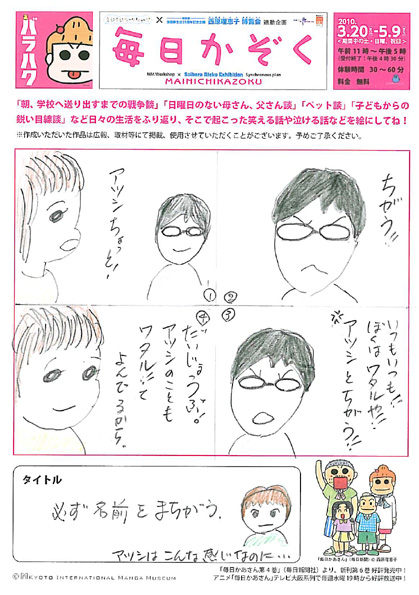 バラハク
西原理恵子 博覧会 連動企画
毎日かぞく
MM Workshop × Saibara Rieko Exhibition Synchronous plan
MAINICHIKAZOKU
2010.
3.20[土]-5.9[日]
<期間中の土・日曜、祝日>
午前11時~午後5時
(受付終了:午後4時30分)
体験時間 30~60分
料金 無料
「朝、学校へ送り出すまでの戦争談」「日曜日のない母さん、父さん談」「ペット談」「子どもからの
鋭い目線談」など日々の生活をふり返り、そこで起こった笑える話や泣ける話などを絵にしてね!
※作成いただいた作品は広報、取材等にて掲載、使用させていただくことがございます。予めご了承ください。
アツシちょっと!
①
ちがう!!
②
いつもいつも!!
ぼくはワタルや!!
アツシとちがう!!
③
④
だいじょうぶ。
アツシのことも
ワタルって
よんでるから。
タイトル
必ず名前をまちがう。
アツシはこんな感じなのに…
『毎日かあさん』(毎日新聞社) © 西原理恵子
©KYOTO INTERNATIONAL MANGA MUSEUM
『毎日かあさん第4巻』(毎日新聞社)より、新刊第6巻好評発売中!
アニメ『毎日かあさん』テレビ大阪系列で毎週水曜19時から好評放送中!